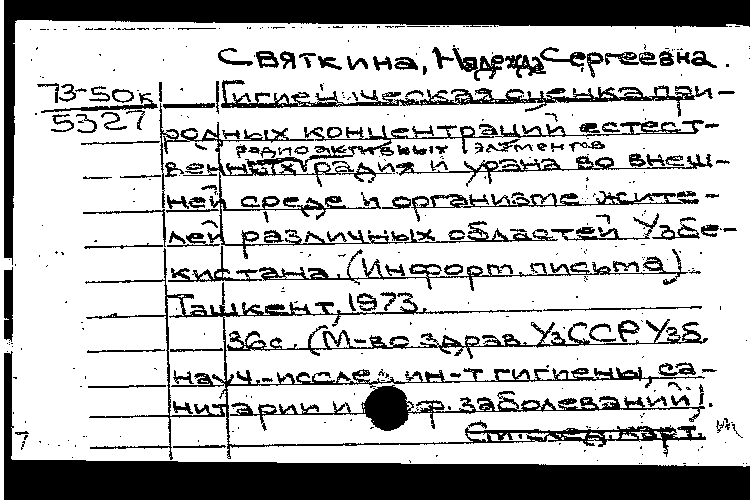 Святкина, Надежда Сергеевна.
73-50к
5327
Гигиеническая оценка при-
родных концентраций естест-
радиоактивных элементов
венных радия и урана во внеш-
ней среде и организме жите-
лей различных областей Узбе-
кистана. (Информ. письмо)
Ташкент, 1973.
36с. (М-во здрав. УзССР Узб.
науч.-исслед. ин-т гигиены, са-
нитарии и заболеваний).
См. след. карт.
7